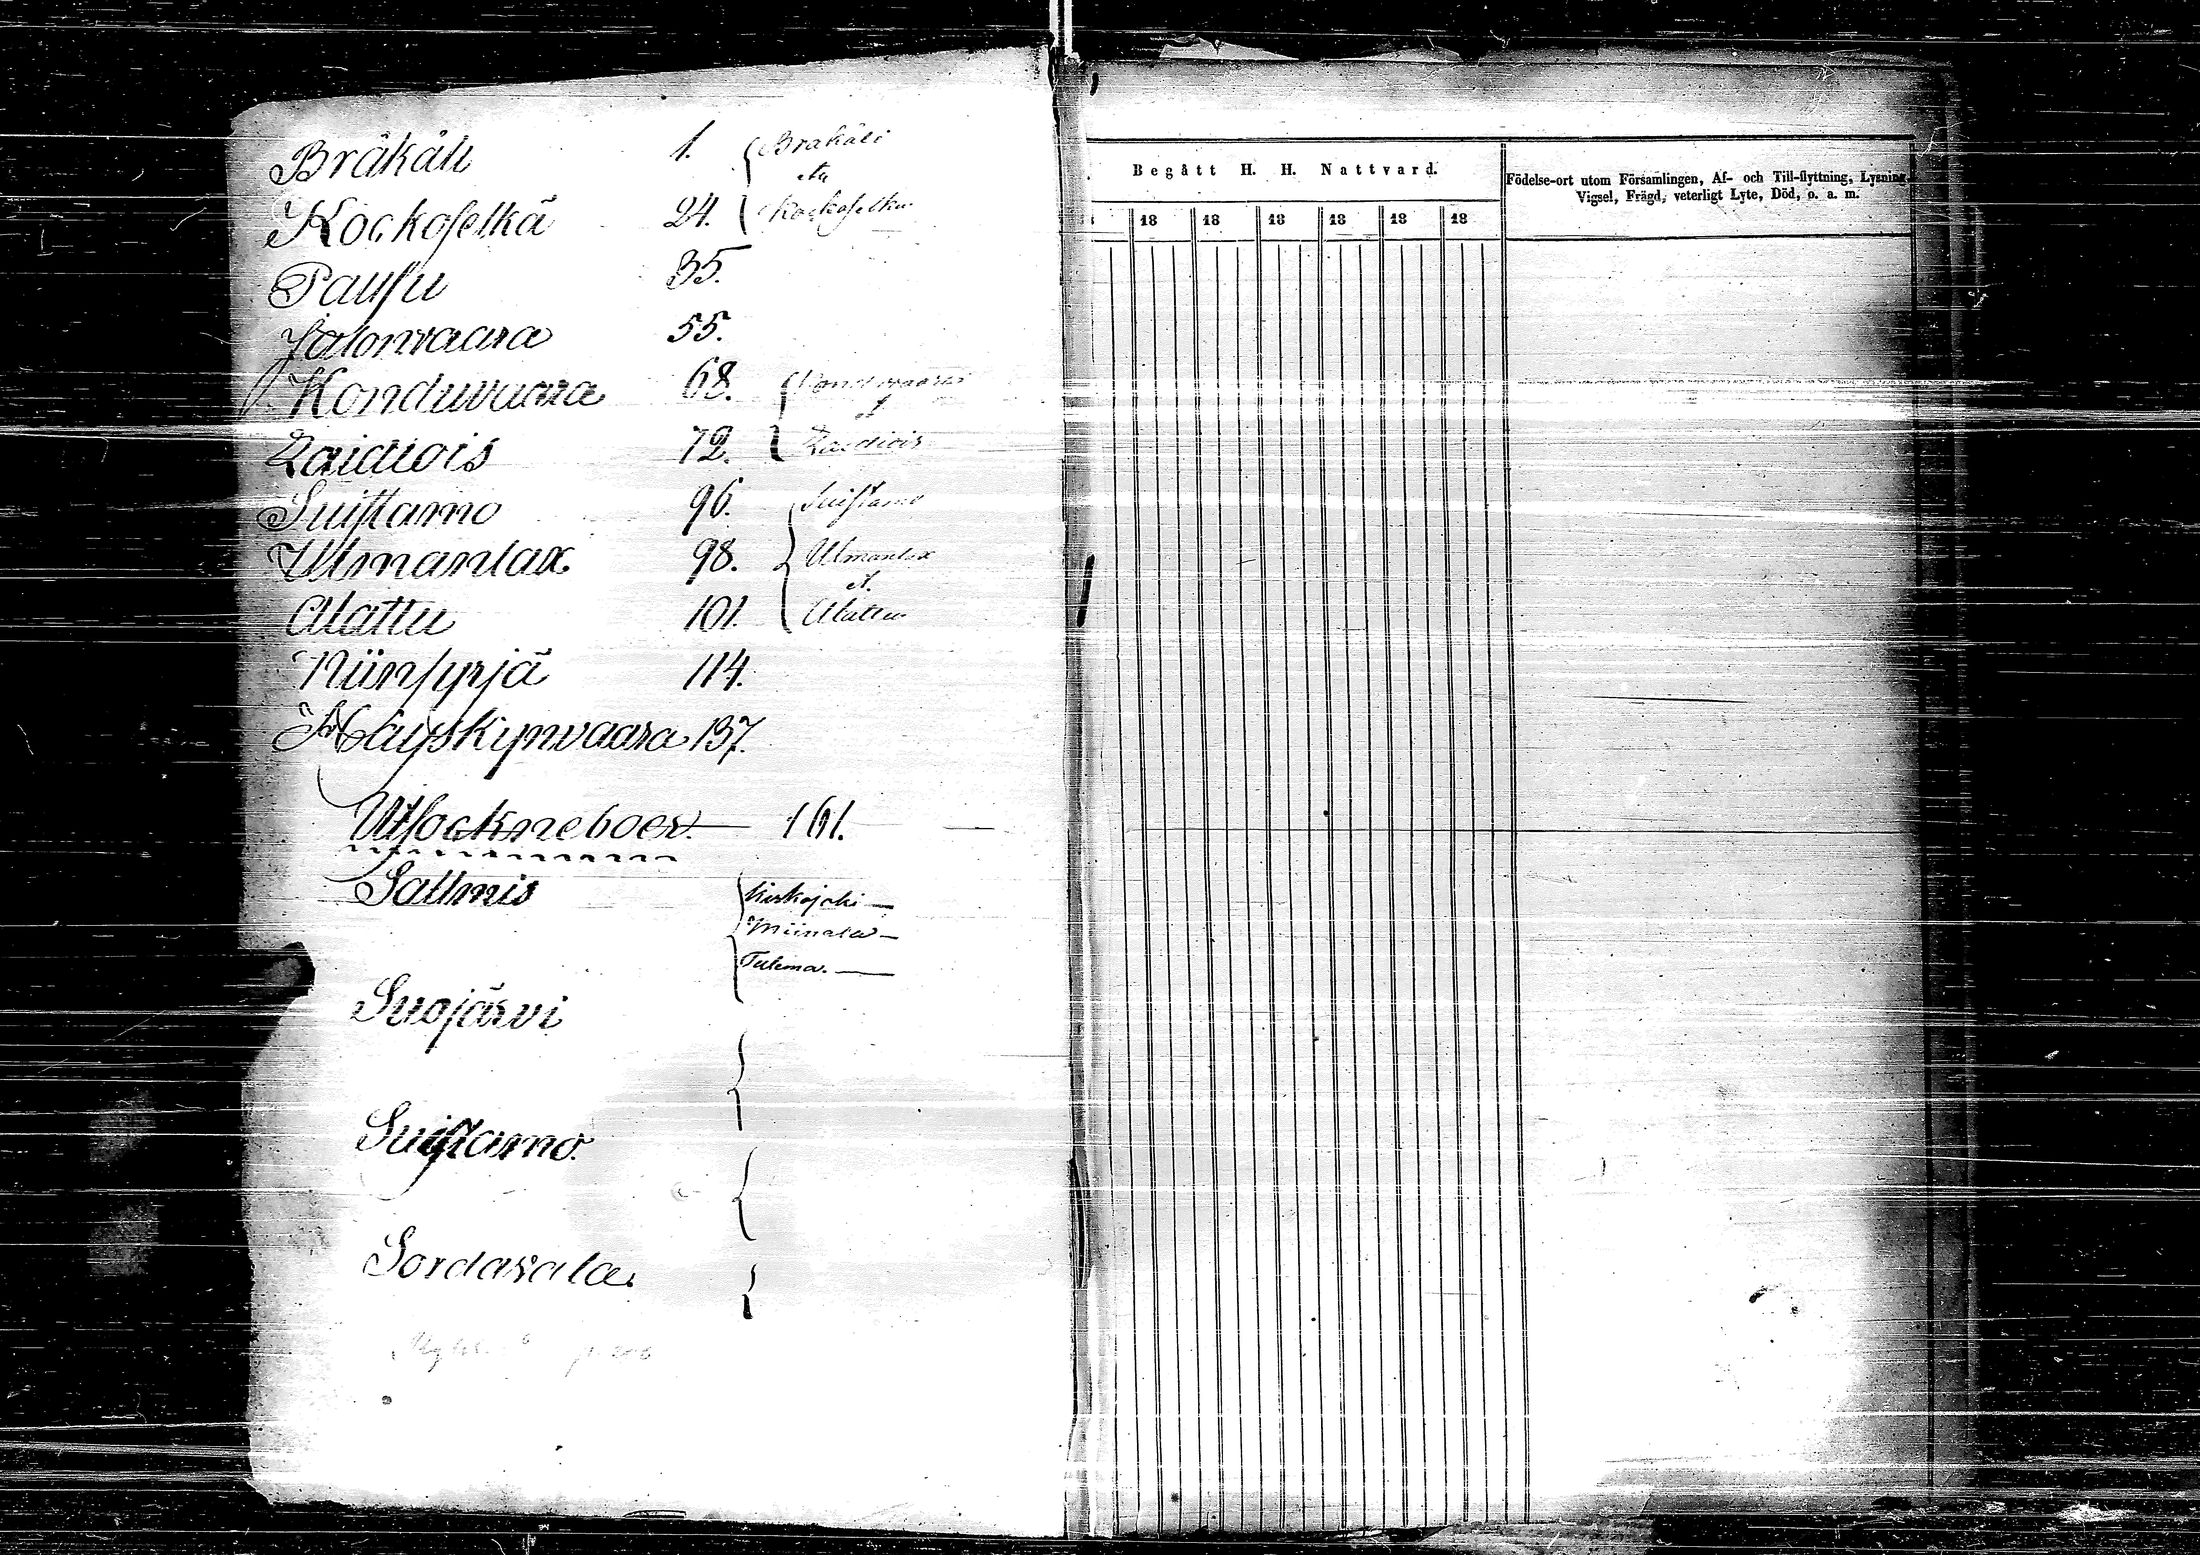 Bräkäli 1. Bräkäli
Kockoselkä 24. Kockoselkä
Paussu 35.
Jalonvaara 55.
Konduvaara 68. Konduvaara
Laidiois 72. Laidiois
Suistamo 96. Suistamo
Ulmanlax 98. Ulmanlax
et.
Alattu 101. Alattu
Niinsyrjä 114.
Äläyskynvaara 137.
Utsockneboer. 161.
Sallmis Kirkojoki
Miinala
Tulema.
Suojärvi
Suistamo.
Sordavala.
Begått H. H. Nattvard.
Födelse-ort utom Församlingen, Af- och Till-flyttning, Lysning,
Vigsel, Frägd, veterligt Lyte, Död, o. a. m.
18 18 18 18 18 18